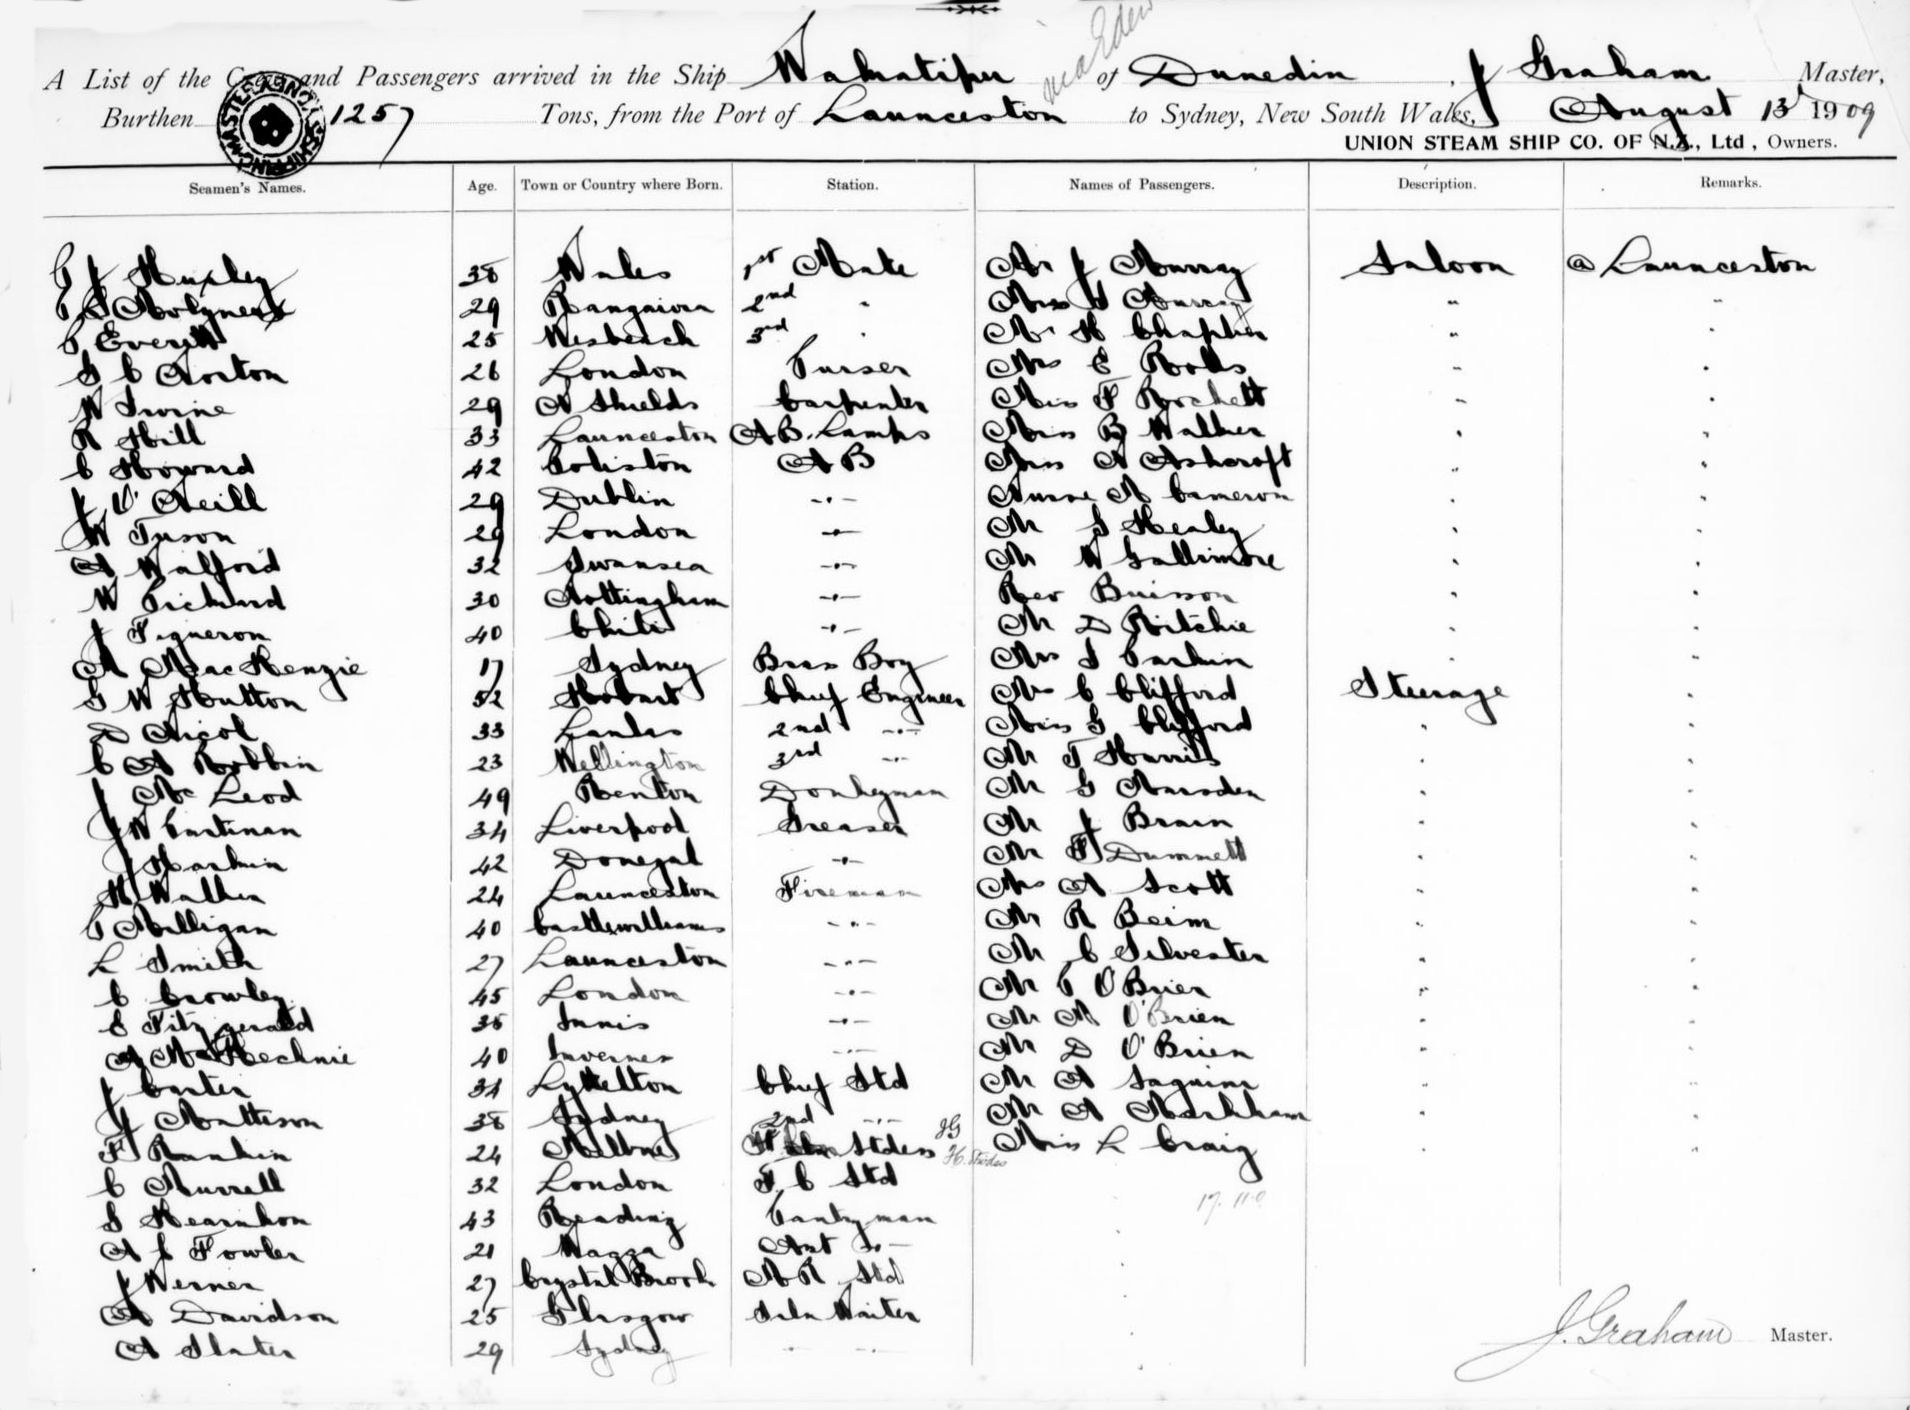 A List of the Crew and Passengers arrived in the Ship Wakatipu of Dunedin, J Graham Master,
via Eden
Burthen 1257 Tons, from the Port of Launceston to Sydney, New South Wales, August 13 1909
UNION STEAM SHIP CO. OF N.Z., Ltd, Owners.
Seamen's Names. Age. Town or Country where Born. Station. Names of Passengers. Description. Remarks.
G J Huxley 38 Wales 1st Mate Mr J Murray Saloon @ Launceston
Molyneux 29 Rangaiora 2nd " Murray " "
Everett 25 Wesbeach 3rd " Mr H Chaplin " "
G C Norton 26 London Purser Mrs E Rolls " "
W Irvine 29 N Shields Carpenter Miss F Rockett " "
R Hill 33 Launceston A B. Lamps Miss B Walker " "
C Howard 42 A B Miss A Ashcroft " "
J O'Neill 29 Dublin -"- Nurse A Cameron " "
W Tuson 29 London -"- Mr S Healey " "
A Walford 32 Swansea -"- Mr W Gallimore " "
W Pickard 30 Nottingham -"- Rev Buisson " "
J Figueron 40 Chili -"- Mr D Ritchie " "
A MacKenzie 17 Sydney Brass Boy Mrs S Parkin " "
G W Hutton 52 Hobart Chief Engineer C Clifford Steerage "
D Nicol 33 2nd -"- Miss G Clifford " "
C A Robbin 23 Wellington 3rd -"- Mr T Harris " "
J Mc Leod 49 Renton Donkeyman Mr G Marsden " "
J W Cartman 34 Liverpool Greaser Mr J Brain " "
J Harkin 42 Donegal -"- Mr F Dummett " "
H Walker 24 Launceston Fireman Mrs A Scott " "
P Milligan 40 Castlewilliams -"- Mr R Beim " "
L Smith 27 Launceston -"- Mr C Silvester " "
C Crowley 45 London -"- Mr P O'Brien " "
E Fitzgerald 38 Innis -"- Mr M O'Brien " "
A McKechnie 40 Inverness -"- Mr D O'Brien " "
J Carter 34 Lyttelton Chief Std Mr A " "
J Mattison 38 Sydney 2nd -"- Mr A Markham " "
F Rankin 24 Melbne Stdess JG H. Stodes Miss L Craig " "
C Murrell 32 London F. C Std
17. 11. 0
S Hearnhon 43 Reading Pantryman
A L Fowler 21 Wagga Asst "-
J Werner 27 Crystal Brook M R Std
A Davidson 25 Glasgow Saln Waiter
A Slater 29 Sydney -"-
J. Graham Master.